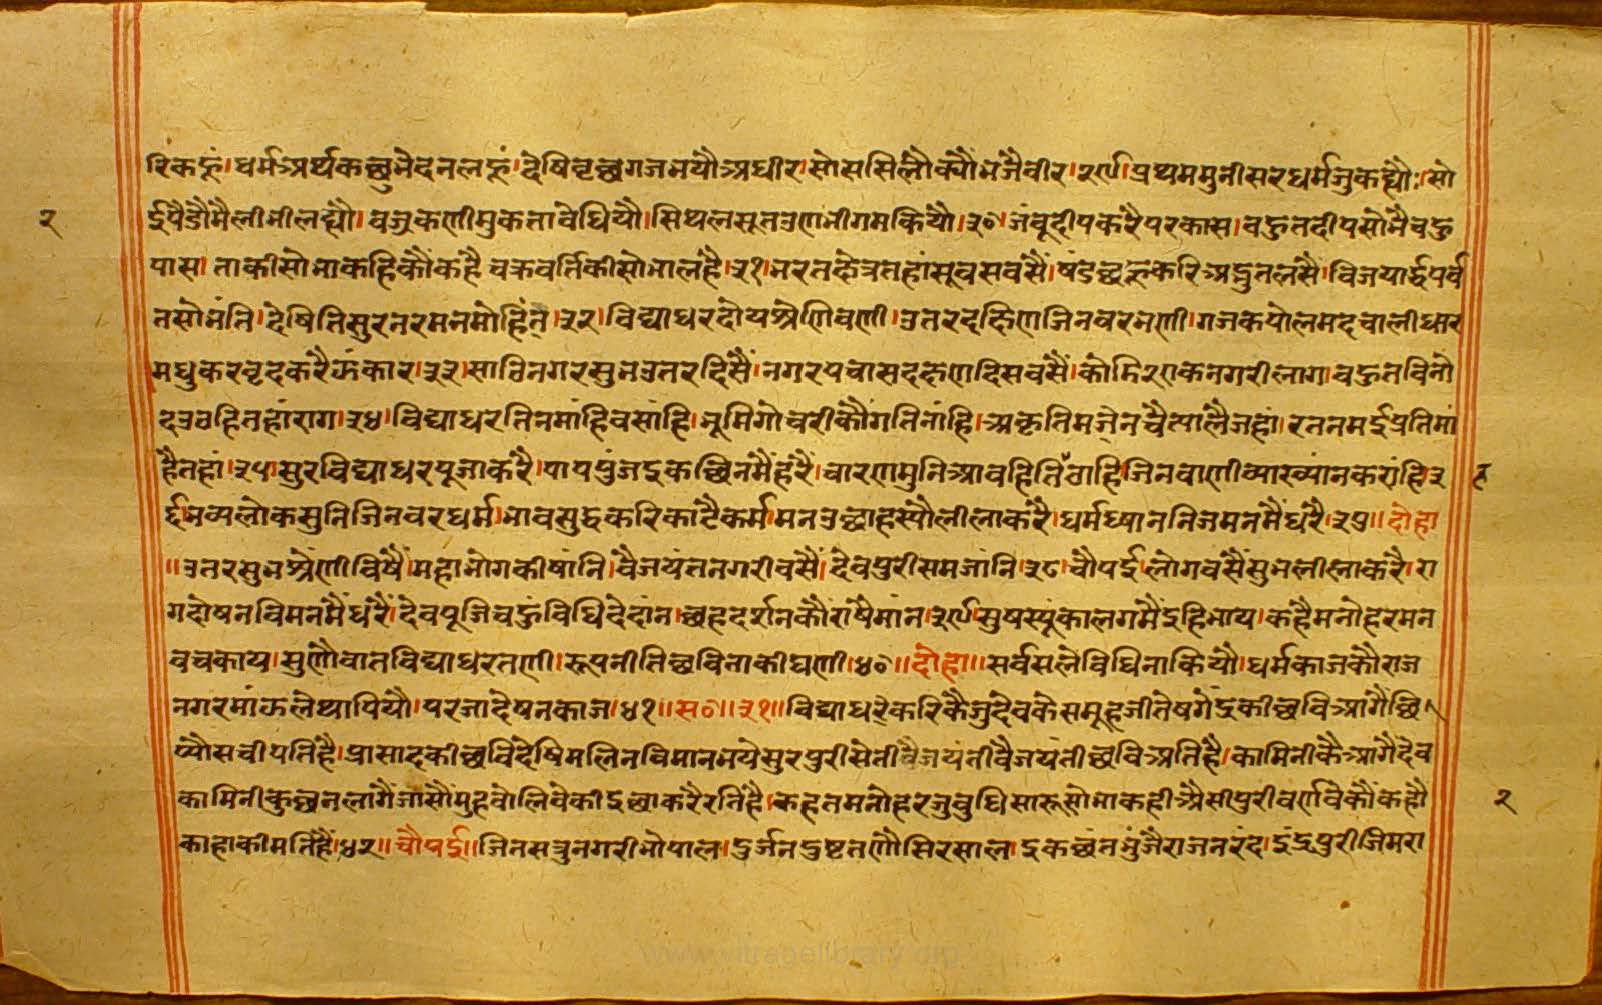 रिकहूं।धर्मअर्थकछुभेदनलहूं।देषिवृछगजभयौअधीर।सोससिलौक्यौंभजैवीर।२९।प्रथममुनीसरधर्मजुकह्यौ।सो
ईपैडौमैलीनीलह्यौ।वज्रकणीमुकतावेधियौ।सिथलसूतउणनीगमकियौ।३०।जंबूदीपकरैपरकास।बहुतदीपसोभैचहु
पास।ताकीसोभाकहिकौंकहै चक्रवर्तिकीसोभालहै।३१।भरतक्षेत्रतहांसूवसवसैं।षंडछहकरिअद्भुतलसैं।विजयार्द्धपर्व
तसोभंति।देषितिसुरनरमनमोहिंत।३२।विद्याधरदोयश्रेणिवणी।उतरदक्षिणजिनवरभणी।गजकपोलमदवालीधार
मधुकरवृदकरैझंकार।३३।साठिनगरसुभउतरदिसैं।नगरपचासदक्षणदिसवसैं।कोटि२एकनगरीलाग।बहुतविनो
दउठहितहांराग।३४।विद्याधरतिनमांहिवसांहि।भूमिगोचरीकौंगतिनांहि।अकृतिमजैनचैत्यालैजहां।रतनमईप्रतिमां
हैतहां।३५।सुरविद्याधरपूजाकरै।पापपुंजइकछिनमैंहरैं।चारणमुनिआवहितिंठाहि।जिनवाणीव्याख्यांनकरांहि।३
६।भव्यलोकसुनिजिनवरधर्म।भावसुद्धकरिकाटैकर्म।मनउछाहस्यौंलीलाकरै।धर्मध्याननिजमनमैंधरै।३७॥दोहा
॥उतरसुभश्रेणीविषैं।महाभोगकीषांनि।वैजयंतनगरीवसैं।देवपुरीसमजांनि।३८।चौपई।लोगवसैंसुभलीलाकरै।रा
गदोषनविमनमैंधरैं।देवपूजिवहुंविधिदेदांन।छहदर्शनकौराषैमांन।३९।सुषस्यूंकालगमैंइहिभाय।कहैमनोहरमन
वचकाय।सुणौवातविद्याधरतणी।रूपनीतिछविनाकीघणी।४०॥दोहा॥सर्वसलेविधिनाकियौ।धर्मकाजकौराज
नगरमांझलेथापियौ।परजादेषनकाज।४१॥स०॥३१॥विद्याधरकेकरिकैजुदेवकेसमूहजीतेषगेंद्रकीछविआगैछि
प्यौसचीपतिहै।प्रासादकीछविदेषिमलिनविमानभयेसुरपुरीसेतीवैजयंतीवैजयंतीछविअतिहै।कामिनीकैआगैदेव
कामिनीकुछनलागैंजासौंमुहवोलिवेकीइछाकरैरतिहै।कहतमनोहरजुवुधिसारूसोभाकहीऐसीपुरीवर्णवेकौंकहौ
काहाकीमतिहैं।४२॥चौपई॥जितसत्रुनगरीभोपाल।दुर्जनदुष्टतणौसिरसाल।इकछंतभुंजैराजनरंद।इंद्रपुरीजिमरा
२
२